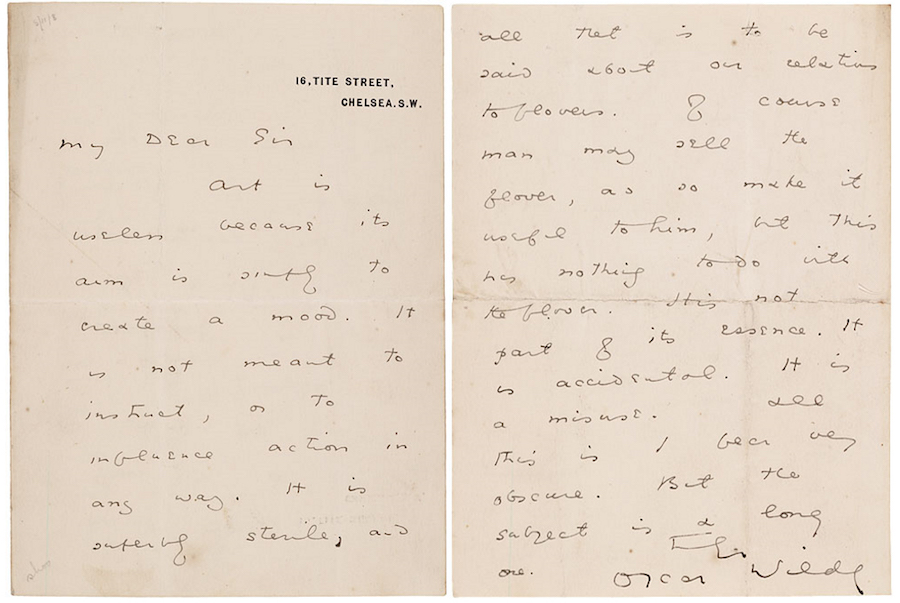 16, TITE STREET,
CHELSEA. S.W.
My Dear Sir
Art is
useless because its
aim is simply to
create a mood. It
is not meant to
instruct, or to
influence action in
any way. It is
superbly sterile, and
all that is to be
said about our relations
to flowers. Of course
man may sell the
flower, and so make it
useful to him, but this
has nothing to do with
the flower. It is not
part of its essence. It
is accidental. It is
a misuse. All
this is I fear very
obscure. But the
subject is a long
one.
Truly
Oscar Wilde